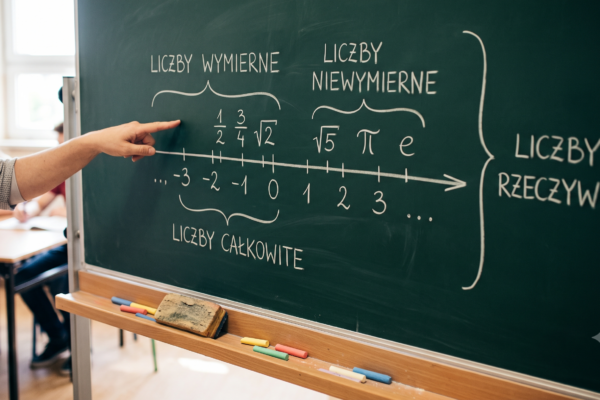 LICZBY WYMIERNE
LICZBY
NIEWYMIERNE
1/2 3/4 √2
√5 π e
... -3 -2 -1 0 1 2 3 ...
LICZBY CAŁKOWITE
LICZBY
RZECZYW